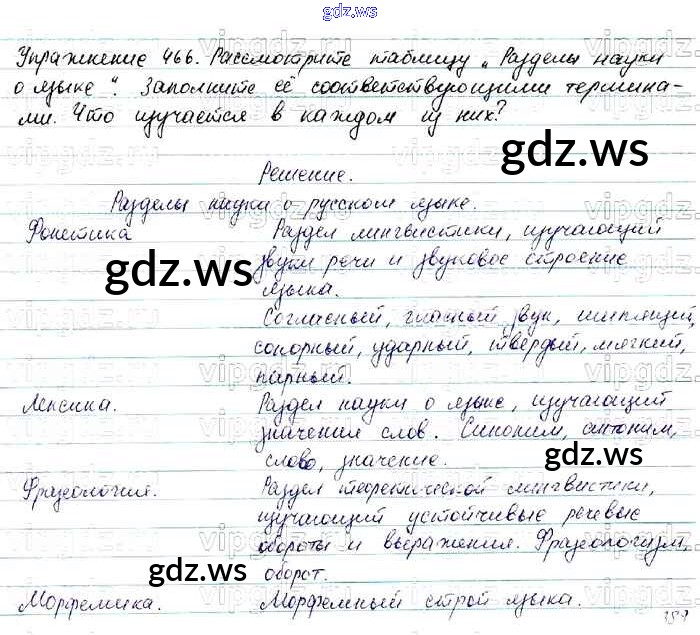 gdz.ws
Упражнение 466. Рассмотрите таблицу „Разделы науки
о языке“. Заполните её соответствующими термина-
ми. Что изучается в каждом из них?
gdz.ws
Решение.
Разделы науки о русском языке.
Фонетика Раздел лингвистики, изучающий
звуки речи и звуковое строение
языка.
gdz.ws
Согласный, гласный, звук, шипящий,
сонорный, ударный, твёрдый, мягкий,
парный.
Лексика. Раздел науки о языке, изучающий
значения слов. Синоним, антоним,
слово, значение.
gdz.ws
Фразеология. Раздел теоретической лингвистики,
изучающий устойчивые речевые
обороты и выражения. Фразеологизм,
оборот.
gdz.ws
Морфемика. Морфемный строй языка.